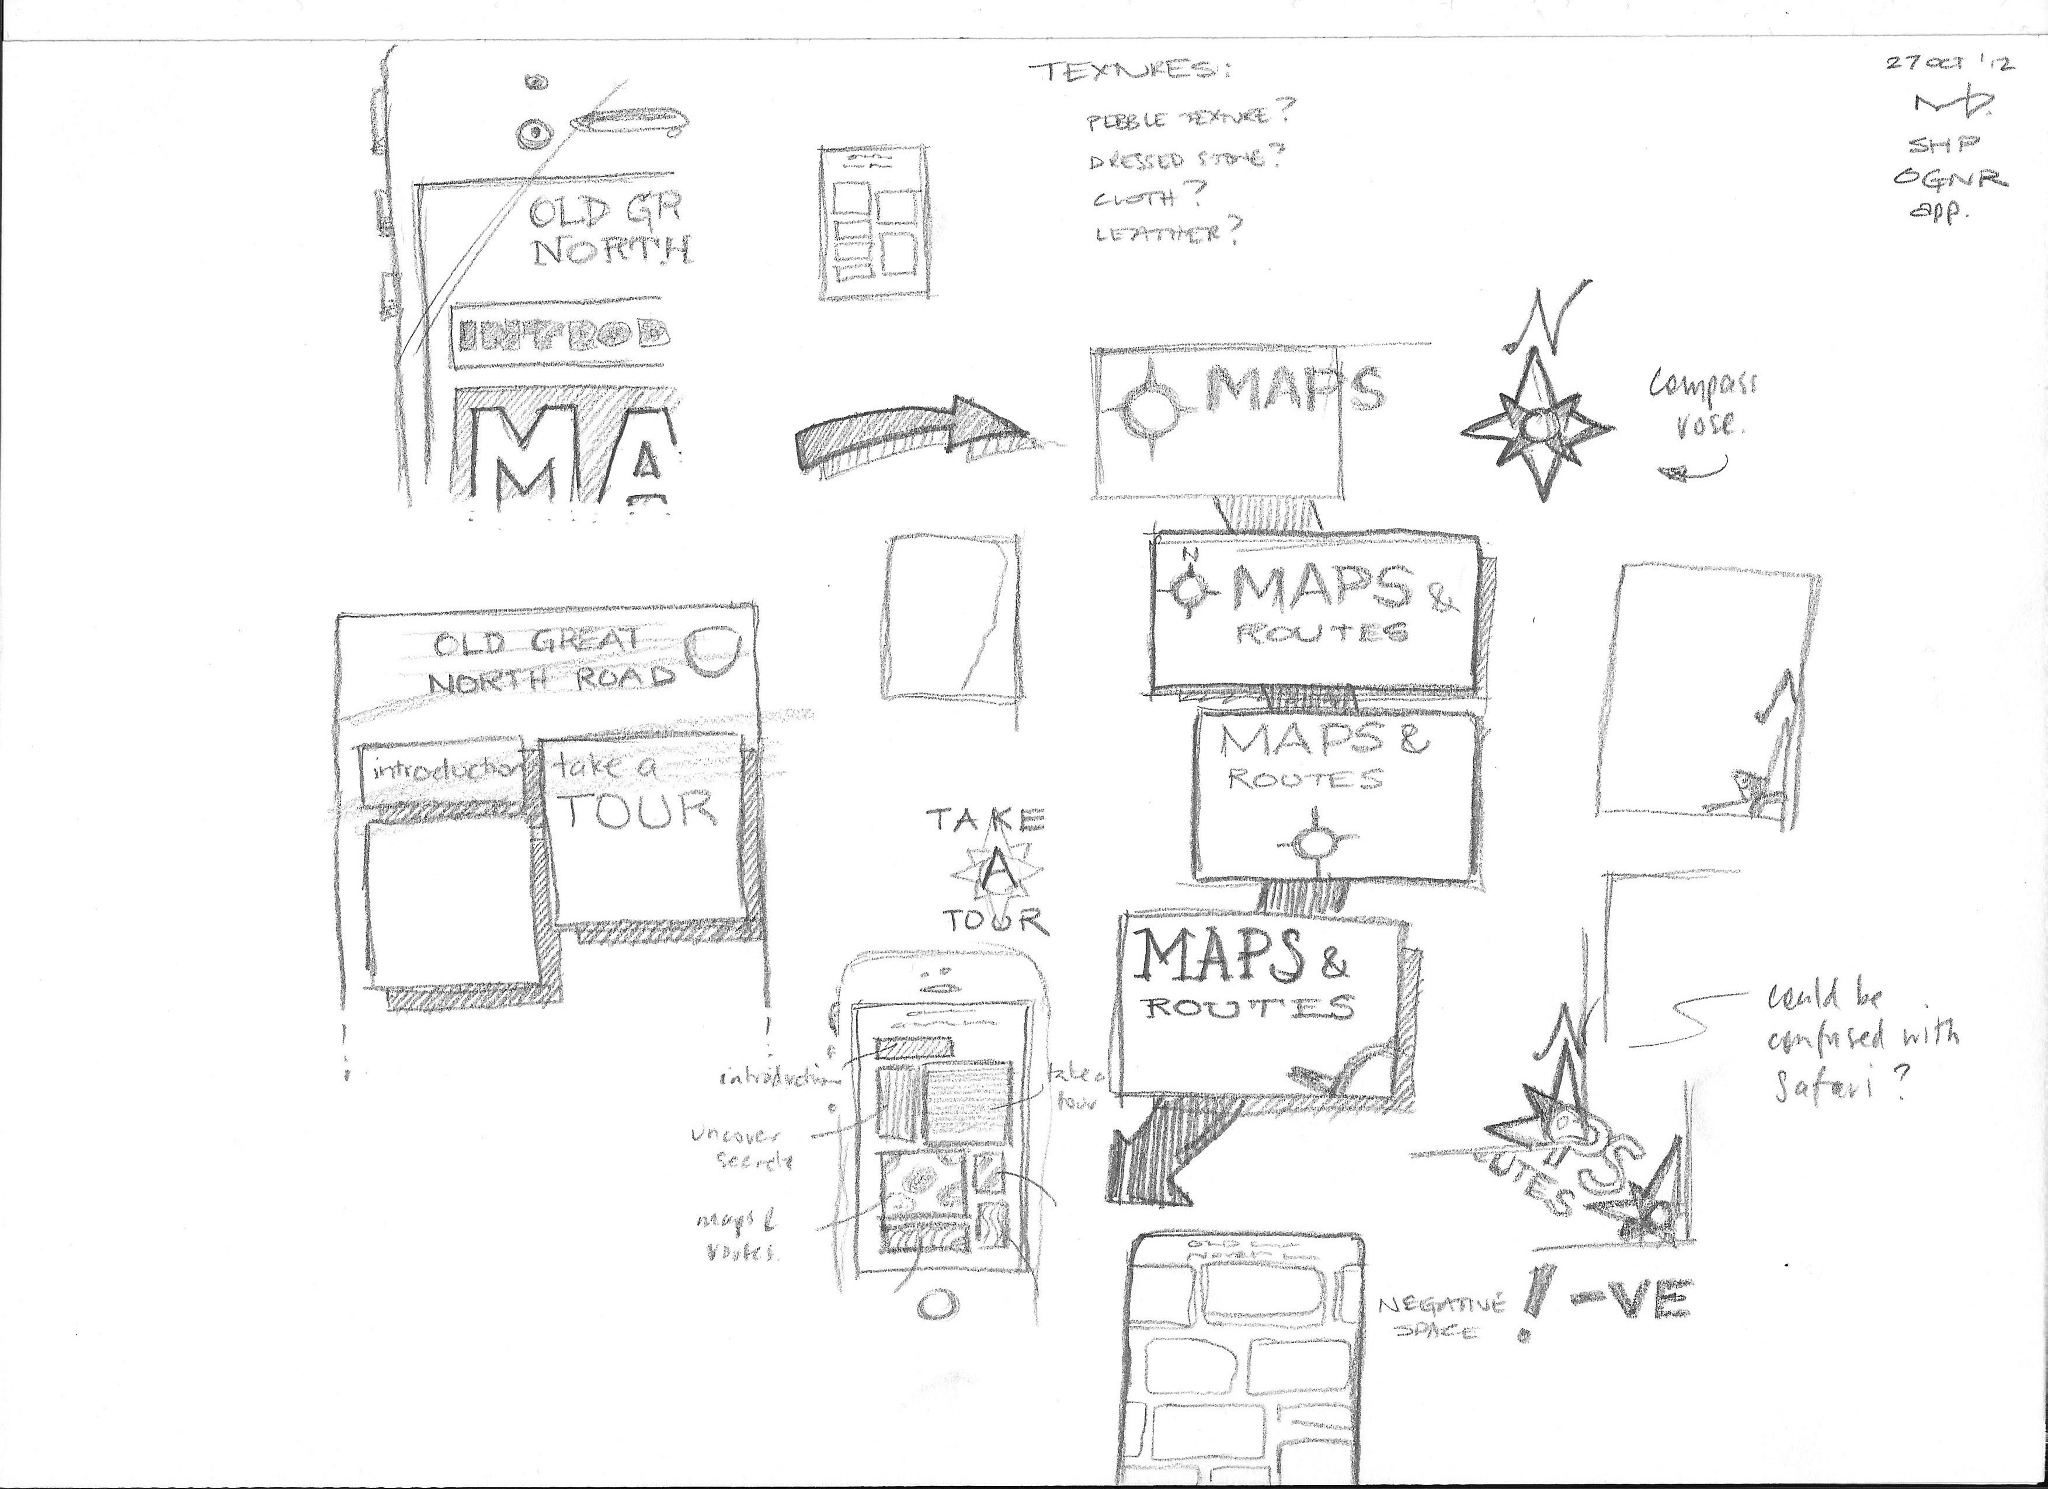 TEXTURES:
PEBBLE TEXTURE?
DRESSED STONE?
CLOTH?
LEATHER?
27 OCT '12
SHP
OGNR
app.
OLD GR
NORTH
INTROD
MA
MAPS
N
compass
rose.
N
MAPS &
ROUTES
OLD GREAT
NORTH ROAD
introduction
take a
TOUR
MAPS &
ROUTES
N
TAKE
A
TOUR
MAPS &
ROUTES
could be
confused with
Safari?
N
introduction
take a
tour
uncover
secrets
maps &
routes.
UTES
OLD
NEGATIVE
SPACE
! -VE